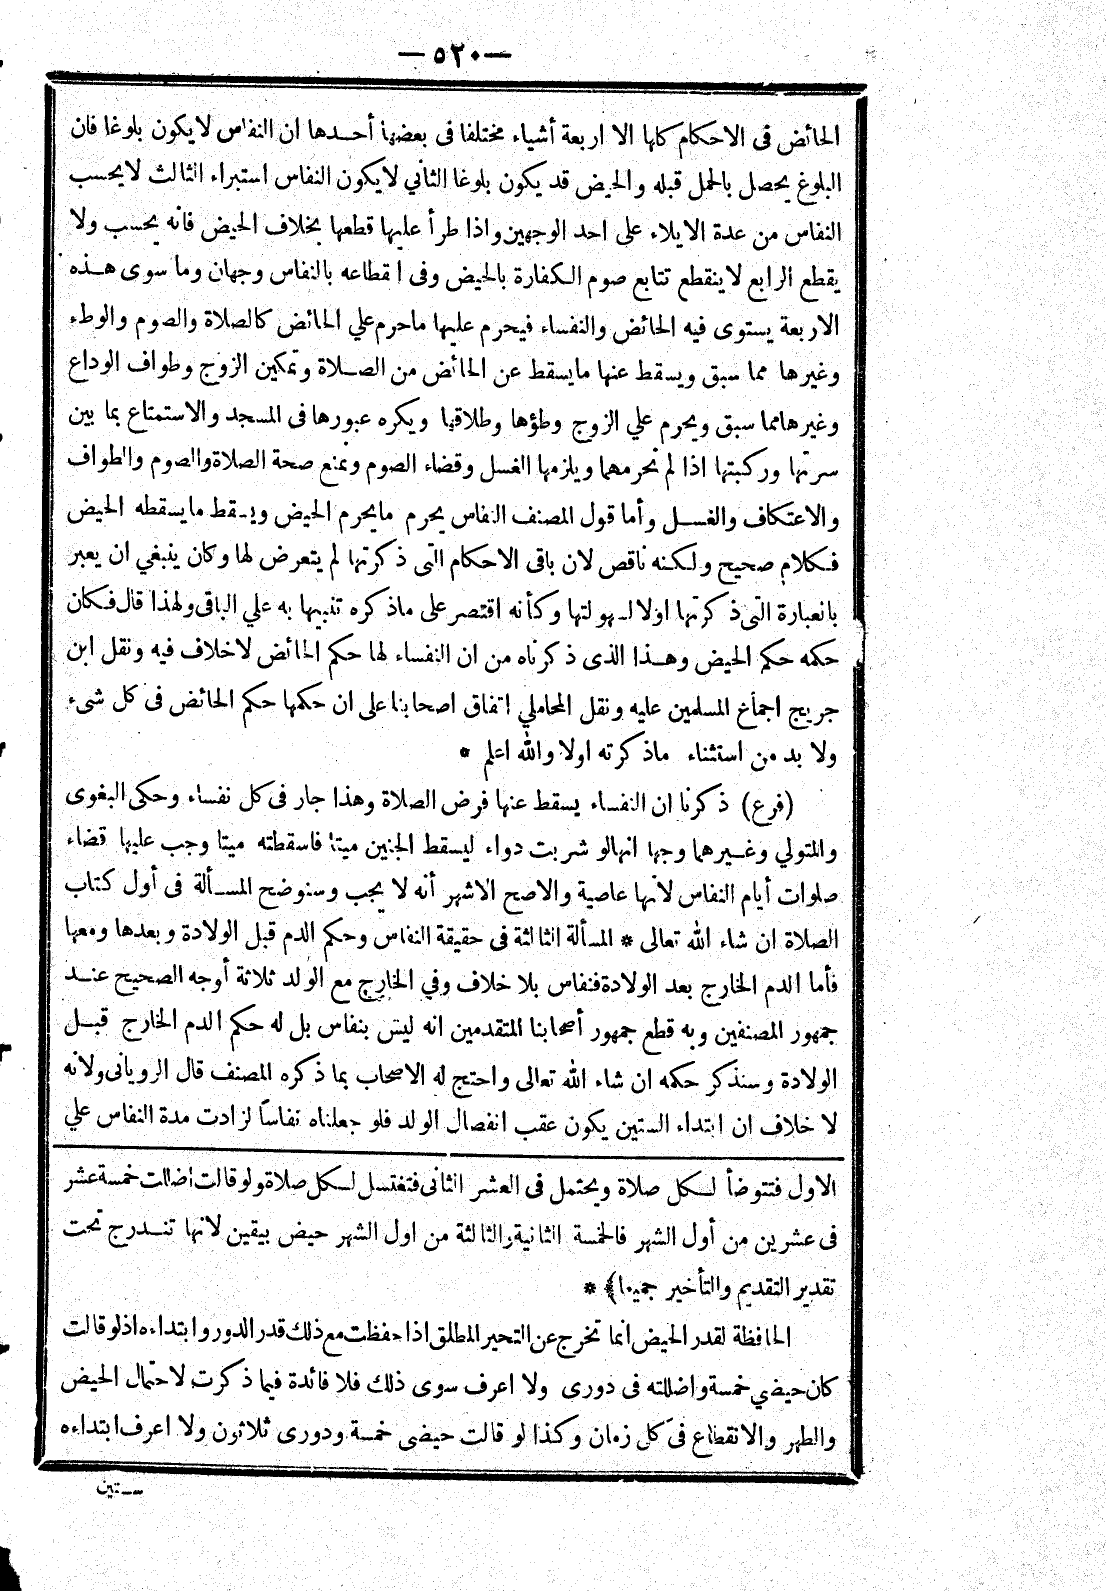 — ٥٢٠ —
الحائض فى الاحكام كلها الا اربعة أشياء مختلفا فى بعضها أحـدها ان النفاس لا يكون بلوغا فان
البلوغ يحصل بالحمل قبله والحيض قد يكون بلوغا الثاني لا يكون النفاس استبراء الثالث لا يحسب
النفاس من عدة الايلاء على احد الوجهين واذا طرأ عليها قطعها بخلاف الحيض فانه يحسب ولا
يقطع الرابع لا ينقطع تتابع صوم الكفارة بالحيض وفى انقطاعه بالنفاس وجهان وما سوى هـذه
الاربعة يستوى فيه الحائض والنفساء فيحرم عليها ما حرم علي الحائض كالصلاة والصوم والوطء
وغيرها مما سبق ويسقط عنها ما يسقط عن الحائض من الصـلاة وتمكين الزوج وطواف الوداع
وغيرها مما سبق ويحرم علي الزوج وطؤها وطلاقها ويكره عبورها فى المسجد والاستمتاع بما بين
سرتها وركبتها اذا لم نحرمهما ويلزمها الغسل وقضاء الصوم وتمنع صحة الصلاة والصوم والطواف
والاعتكاف والغسـل وأما قول المصنف النفاس يحرم ما يحرم الحيض ويسقط ما يسقطه الحيض
فكلام صحيح ولكنه ناقص لان باقى الاحكام التى ذكرتها لم يتعرض لها وكان ينبغي ان يعبر
بالعبارة التى ذكرتها اولا لسهولتها وكأنه اقتصر على ما ذكره تنبيها به علي الباقى ولهذا قال فكان
حكمه حكم الحيض وهـذا الذى ذكرناه من ان النفساء لها حكم الحائض لا خلاف فيه ونقل ابن
جريج اجماع المسلمين عليه ونقل المحاملي اتفاق اصحابنا على ان حكمها حكم الحائض فى كل شىء
ولا بد من استثناء ما ذكرته اولا والله اعلم *
(فرع) ذكرنا ان النفساء يسقط عنها فرض الصلاة وهذا جار فى كل نفساء وحكى البغوى
والمتولي وغـيرهما وجها انها لو شربت دواء ليسقط الجنين ميتا فاسقطته ميتا وجب عليها قضاء
صلوات أيام النفاس لانها عاصية والاصح الاشهر أنه لا يجب وسنوضح المسـألة فى أول كتاب
الصلاة ان شاء الله تعالى * المسألة الثالثة فى حقيقة النفاس وحكم الدم قبل الولادة وبعدها ومعها
فأما الدم الخارج بعد الولادة فنفاس بلا خلاف وفي الخارج مع الولد ثلاثة أوجه الصحيح عنـد
جمهور المصنفين وبه قطع جمهور أصحابنا المتقدمين انه ليس بنفاس بل له حكم الدم الخارج قبـل
الولادة وسنذكر حكمه ان شاء الله تعالى واحتج له الاصحاب بما ذكره المصنف قال الرويانى ولانه
لا خلاف ان ابتداء الستين يكون عقب انفصال الولد فلو جعلناه نفاسا لزادت مدة النفاس علي
الاول فتتوضأ لـكل صلاة ويحتمل فى العشر الثانى فتغتسل لـكل صلاة ولو قالت اضللت خمسة عشر
فى عشرين من أول الشهر فالخمسة الثانية والثالثة من اول الشهر حيض بيقين لانها تنـدرج تحت
تقدير التقديم والتأخير جميعا﴾ *
الحافظة لقدر الحيض انما تخرج عن التحير المطلق اذا حفظت مع ذلك قدر الدور وابتداءه اذ لو قالت
كان حيضي خمسة واضللته فى دورى ولا اعرف سوى ذلك فلا فائدة فيما ذكرت لاحتمال الحيض
والطهر والانقطاع فى كل زمان وكذا لو قالت حيضى خمسة ودورى ثلاثون ولا اعرف ابتداءه
ســتين